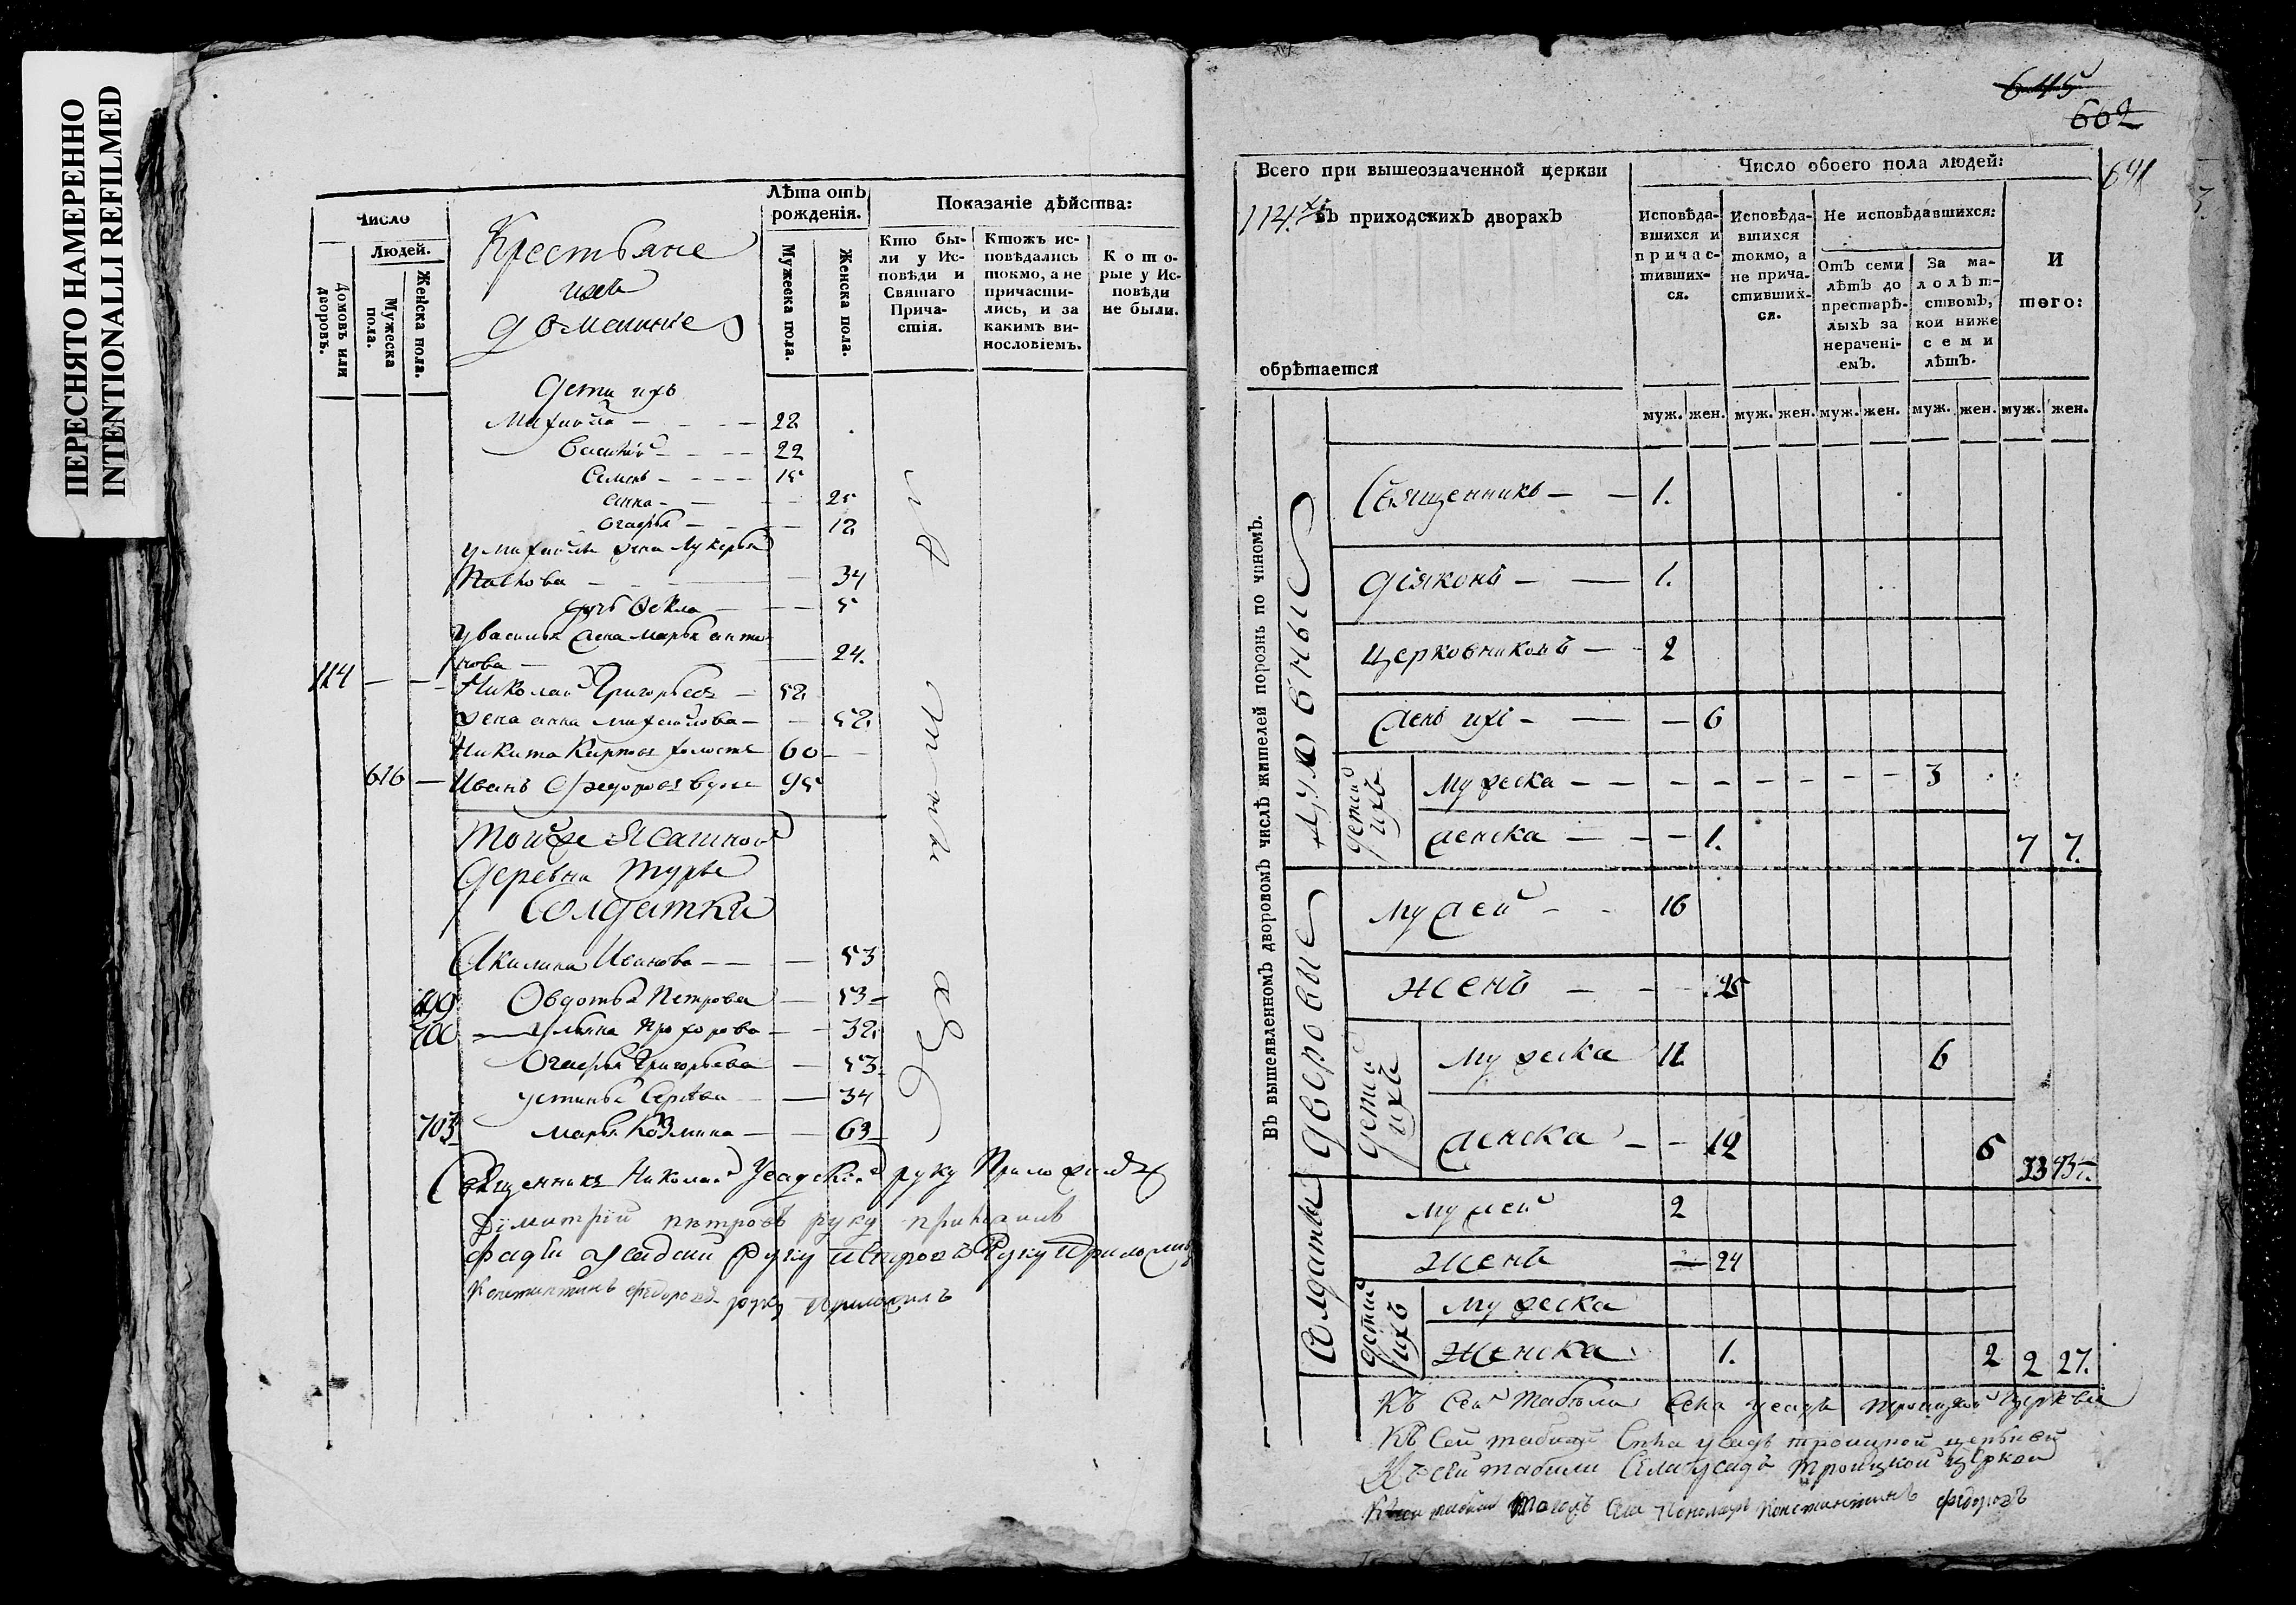 ПЕРЕСНЯТО НАМЕРЕННО
INTENTIONALLI REFILMED
Число
Людей.
Домовъ или дворовъ.
Мужеска пола.
Женска пола.
Крестьяне
ихъ
домашніе
Лѣта отъ рожденія.
Мужеска пола.
Женска пола.
Показаніе дѣйства:
Кто были у Исповѣди и Святаго Причастія.
Ктожъ исповѣдались токмо, а не причастились, и за какимъ винословіемъ.
Которые у Исповѣди не были.
дети ихъ
Михайла — 22
Василий — 22
Семенъ — 15
Анна — 25
Огафья — 12
у михайлы жена Лукерья
34
дочь Фекла — 5
у василья жена марья анти
нова — 24.
114 — — Николай Григорьевъ — 52
жена анна михайлова — 52
Никита Карповъ холостъ 60 —
616 — Иванъ Федоровъ 95
тойже Ясашной
деревни Турье
Солдатки
Акилина Иванова — — 53
699 Овдотья Петрова — 53 —
700 Ульяна Прохорова — 32
Огафья Григорьева — 53
устинья — 34
703 марья Козмина — 63
Священникъ Николай Усадский руку Приложилъ
Димитрий петровъ руку приложилъ
руку приложилъ
Константинъ федоровъ руку приложилъ
645
662
641
Всего при вышеозначенной церкви
114.хъ въ приходскихъ дворахъ
обрѣтается
Число обоего пола людей:
Исповѣдавшихся и причастившихся.
Исповѣдавшихся токмо, а не причастившихся.
Не исповѣдавшихся:
Отъ семи лѣтъ до престарѣлыхъ за нераченіемъ.
За малолѣтствомъ, кои ниже семи лѣтъ.
И того:
муж. жен. муж. жен. муж. жен. муж. жен. муж. жен.
Въ вышеявленномъ дворовомъ числѣ жителей порознь по чиномъ.
Духовныя
Священникъ — — 1.
Діяконъ — — 1.
Церковниковъ — 2
женъ ихъ — — — 6
детей ихъ
мужеска — — — — — — — — 3
женска — — — 1. 7 7.
Дворовые
мужей — 16
женъ — — 25
детей ихъ
мужеска 11 6
женска — — 12 6
Солдаты
мужей 2
женъ — 24
детей ихъ
мужеска
женска 1. 2 2 27.
Къ сей табели села усадъ троицкой церкви
Къ сей табели села усадъ троицкой церкви
Къ сей табели села усадъ троицкой церкви
пономарь константинъ федоровъ